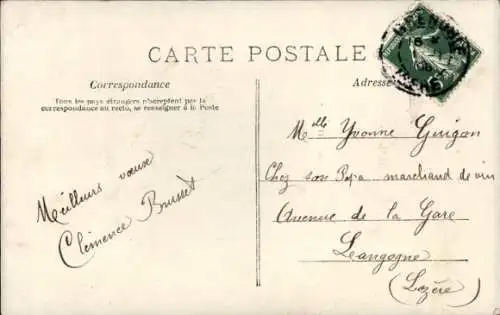 CARTE POSTALE
Correspondance
Tous les pays étrangers n'acceptent pas la
correspondance au recto, se renseigner à la Poste
Meilleurs vœux
Clémence
Adresse
Melle Yvonne Guigon
Chez son Papa marchand de vin
Avenue de la Gare
Langogne
(Lozère)